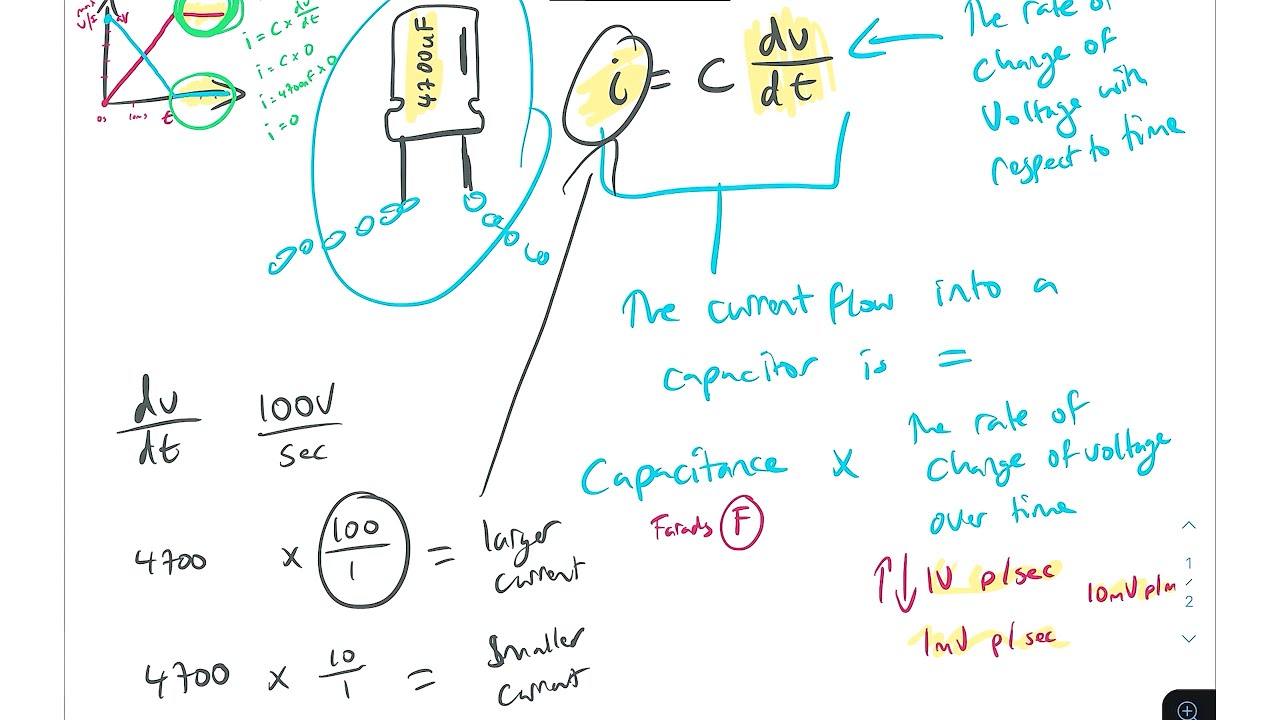 i = C × dv/dt
i = C × 0
i = 4700uF × 0
i = 0
0s 10ms t
4700uF
i = C dv/dt
The rate of
change of
Voltage with
respect to time
The current flow into a
capacitor is =
Capacitance × The rate of
change of voltage
over time
Farads F
1V p/sec
10mV p/m
1mV p/sec
dv/dt 100V/sec
4700 × 100/1 = larger
current
4700 × 10/1 = smaller
current
1
/
2